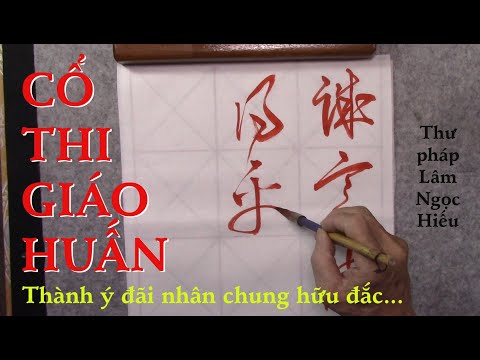 CỔ
THI
GIÁO
HUẤN
Thành ý đãi nhân chung hữu đắc...
Thư
pháp
Lâm
Ngọc
Hiếu
言
得平